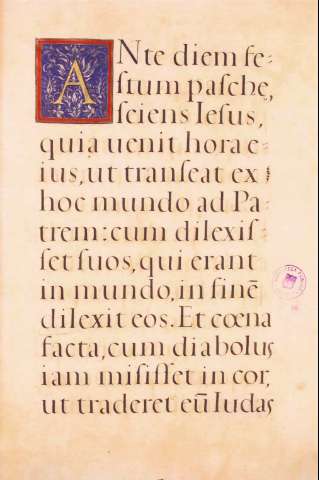 ANte diem fe-
ſtum paſchę,
ſciens Ieſus,
quia uenit hora e-
ius, ut tranſeat ex
hoc mundo ad Pa-
trem: cum dilexiſ-
ſet ſuos, qui erant
in mundo, in finē
dilexit eos. Et cœna
facta, cum diabolus
iam miſiſſet in cor,
ut traderet eū Iudas